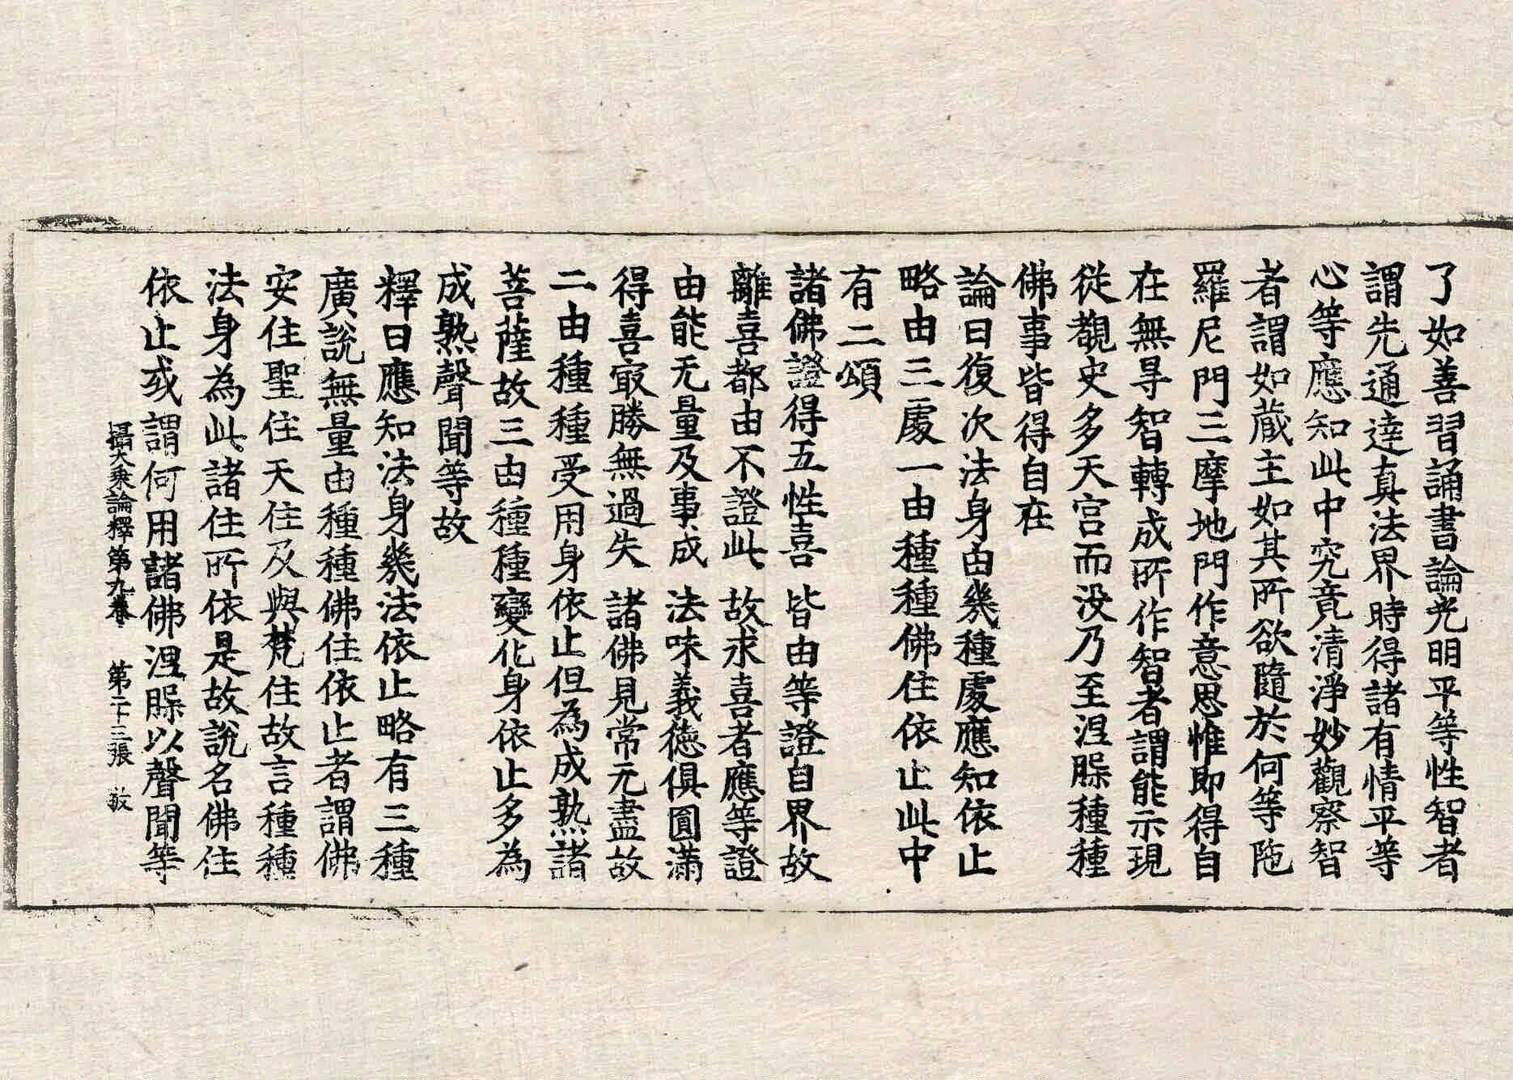 了如善習誦書論光明平等性智者
謂先通達真法界時得諸有情平等
心等應知此中究竟清淨妙觀察智
者謂如蔵主如其所欲隨於何等陁
羅尼門三摩地門作意思惟即得自
在無㝵智轉成所作智者謂能示現
從覩史多天宫而没乃至涅槃種種
佛事皆得自在
論曰復次法身由幾種處應知依止
略由三處一由種種佛住依止此中
有二頌
諸佛證得五性喜　皆由等證自界故
離喜都由不證此　故求喜者應等證
由能无量及事成　法味義德俱圓滿
得喜冣勝無過失　諸佛見常无盡故
二由種種受用身依止但為成熟諸
菩薩故三由種種變化身依止多為
成熟聲聞等故
釋曰應知法身幾法依止略有三種
廣說無量由種種佛住依止者謂佛
安住聖住天住及與梵住故言種種
法身為此諸住所依是故說名佛住
依止或謂何用諸佛涅槃以聲聞等
攝大乘論釋第九卷　第二十三張　敳